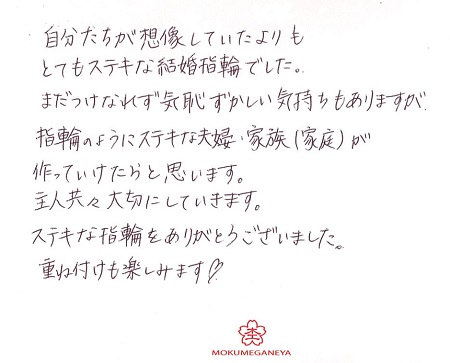 自分たちが想像していたよりも
とてもステキな結婚指輪でした。
まだつけなれず気恥ずかしい気持ちもありますが
指輪のようにステキな夫婦・家族(家庭)が
作っていけたらと思います。
主人共々大切にしていきます。
ステキな指輪をありがとうございました。
重ね付けも楽しみます♡
MOKUMEGANEYA